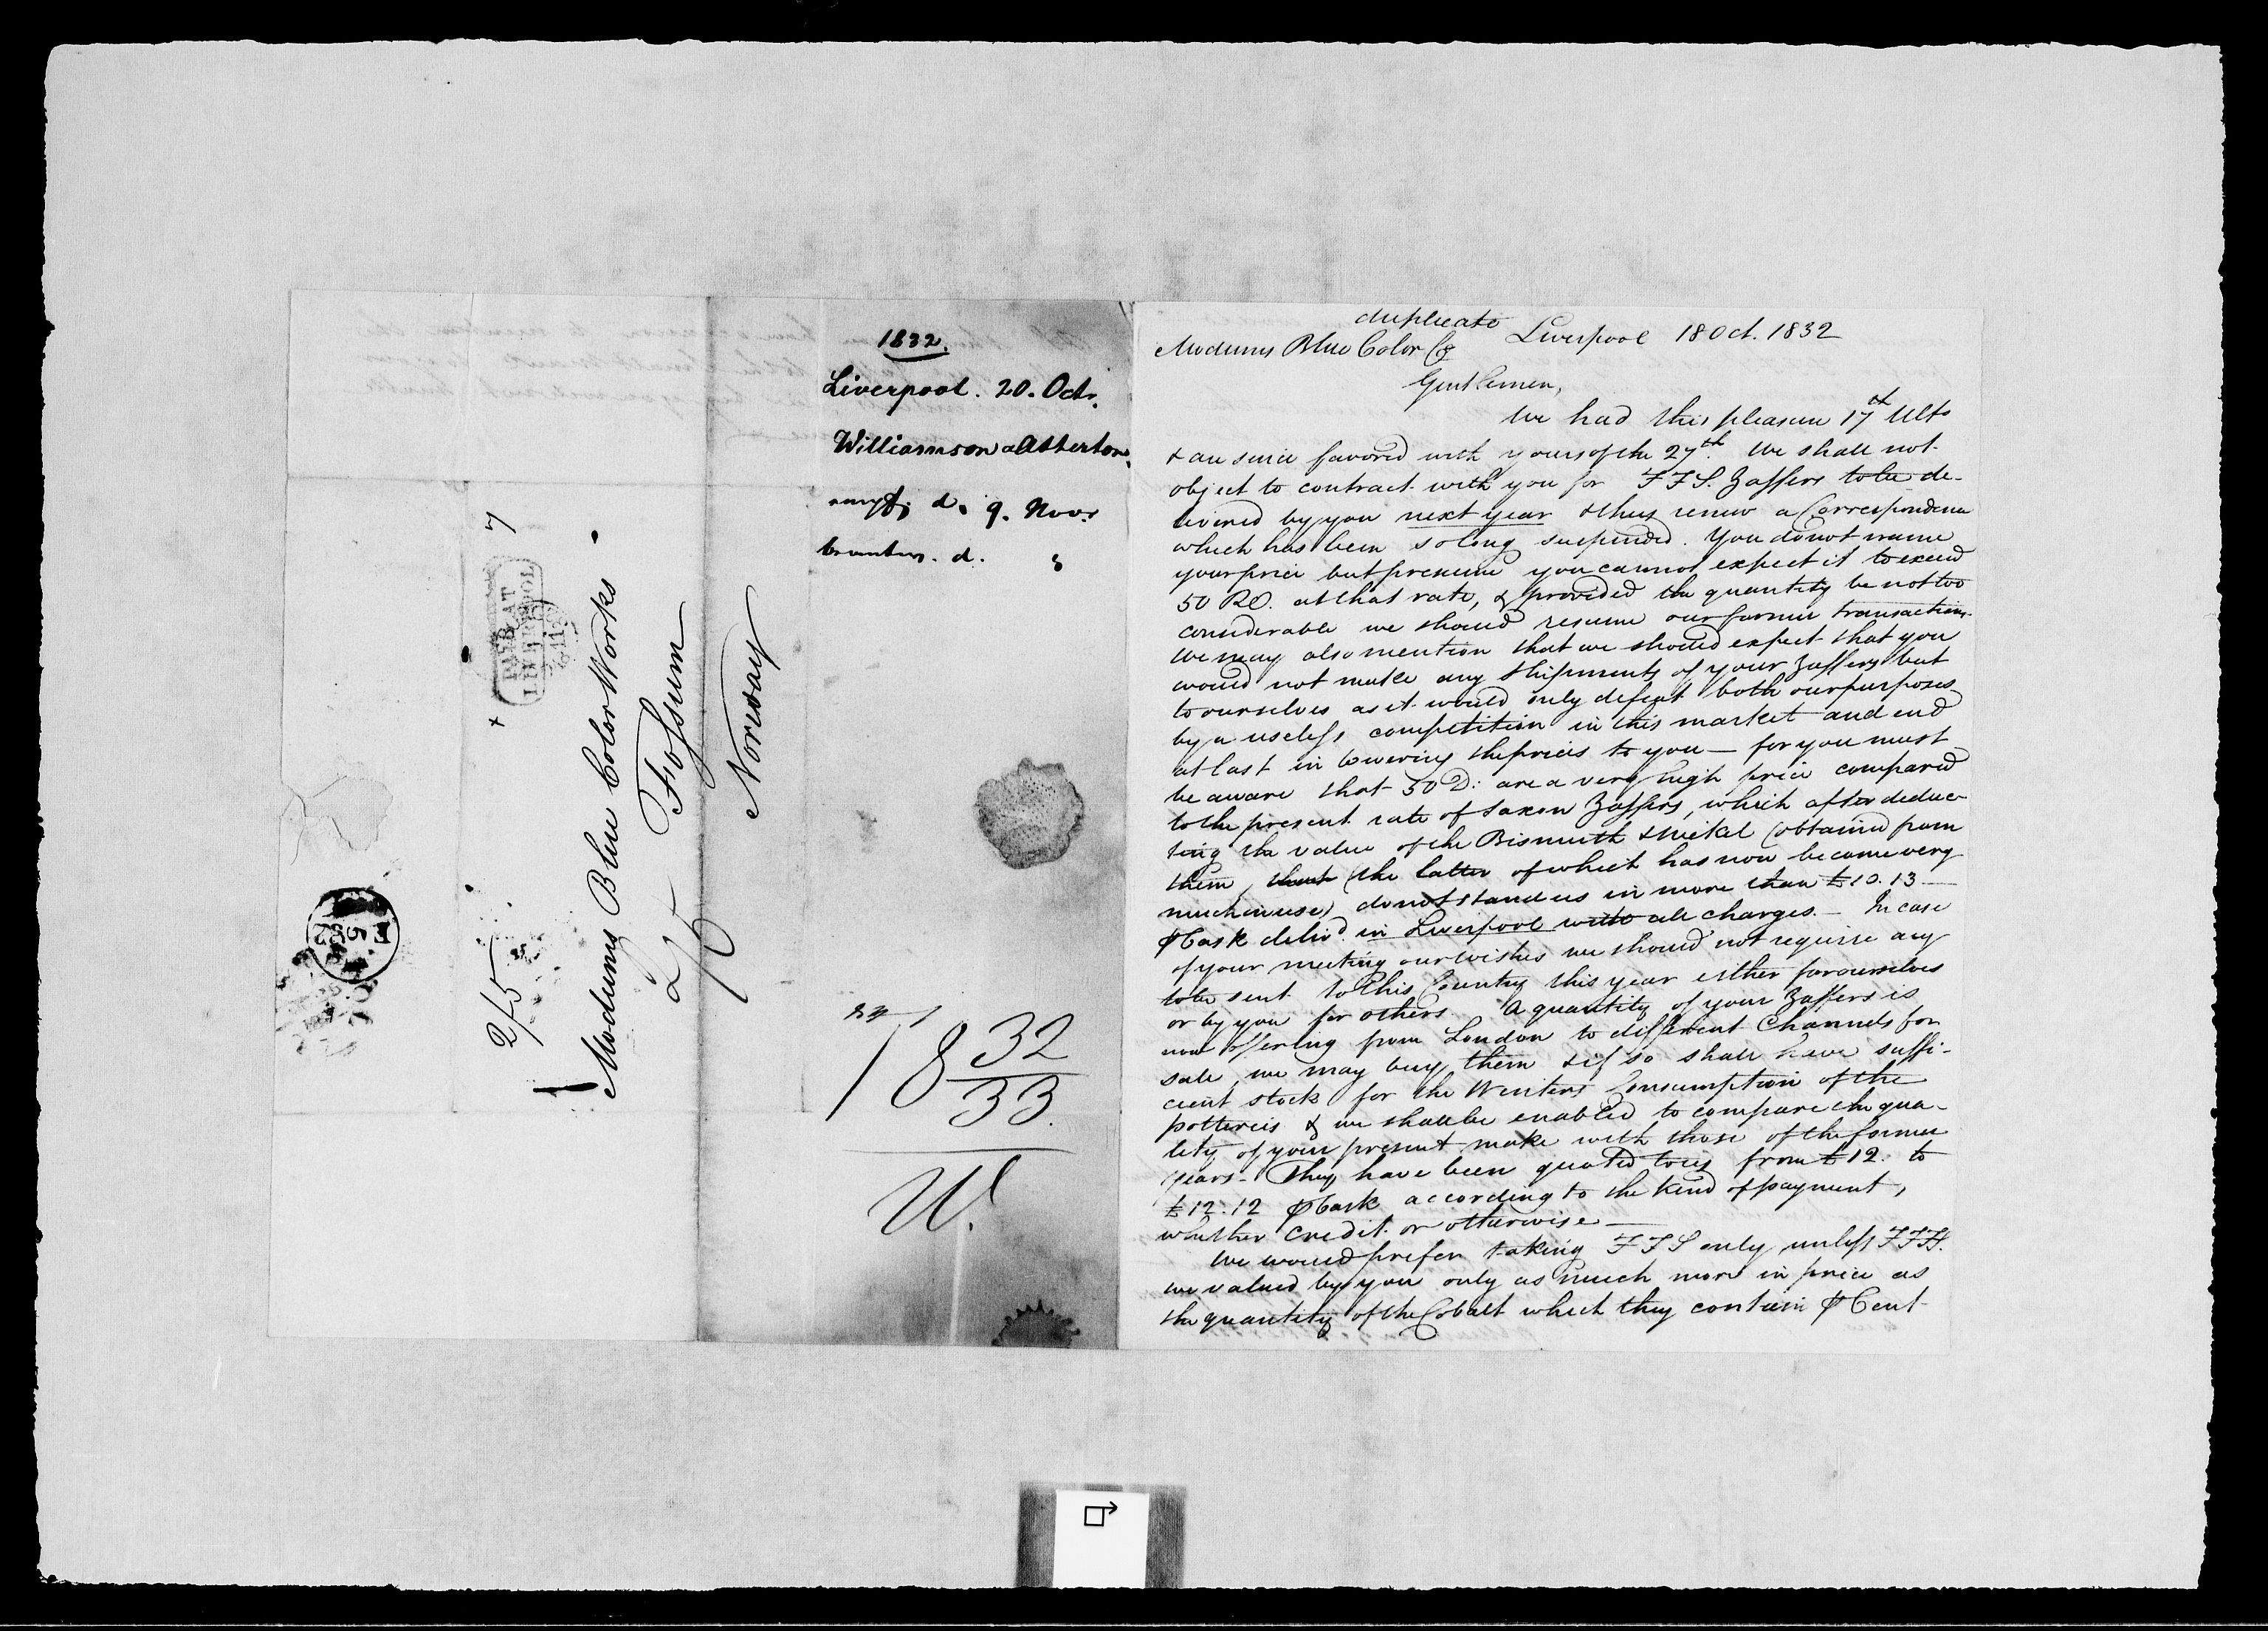 1832.
Liverpool. 20. Octr.
Williamson & Atherton,
empf. d. 9. Novr
beantw. d. "
1832/33.
W.
PAID AT
LIVERPOOL
2/5
Modums Blue Color Works
Fossum
Norway
duplicate
Liverpool 18 Oct. 1832
Modums Blue Color Co
Gentlemen,
We had this pleasure 17th Ulto
& are since favored with yours of the 27th. We shall not
object to contract with you for FFS. Zaffers to be de-
livered by you next year & thus renew a Correspondence
which has been so long suspended. You do not name
your price but presume you cannot expect it to exceed
50 at that rate, & provided the quantity be not too
considerable we should resume our former transactions.
We may also mention that we should expect that you
would not make any shipments of your Zaffers but
to ourselves as it would only defeat both our purposes
by a useless competition in this market and end
at last in lowering the prices to you — for you must
be aware that 50 D: are a very high price compared
to the present rate of Saxon Zaffers, which after deduc-
ting the value of the Bismuth & Nickel (obtained from
them, that (the latter of which has now become very
much in use) do not stand us in more than £10.13 —
⅌ Cask delivd. in Liverpool with all charges. — In case
of your meeting our wishes we should not require any
to be sent to this Country this year either for ourselves
or by you for others. A quantity of your Zaffers is
now offering from London to different Channels for
sale, we may buy them & if so shall have suffi-
cient stock for the Winters Consumption of the
potteries & we shall be enabled to compare the qua-
lity of your present make with those of the former
years — They have been quoted to us from £12. to
£12.12 ⅌ Cask according to the kind of payment,
whether Credit or otherwise —
We would prefer taking FFS only, unless FFFS.
we valued by you only as much more in price as
the quantity of the Cobalt which they contain ⅌ Cent